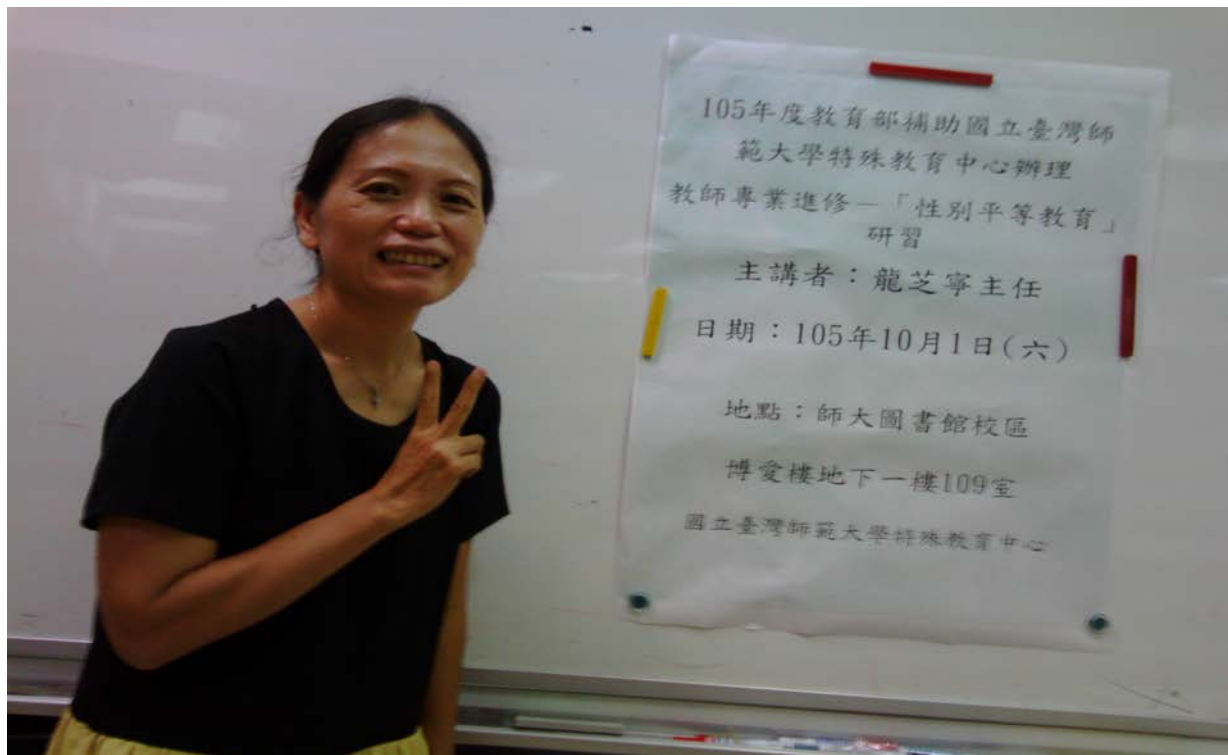 105年度教育部補助國立臺灣師
範大學特殊教育中心辦理
教師專業進修－「性別平等教育」
研習
主講者：龍芝寧主任
日期：105年10月1日(六)
地點：師大圖書館校區
博愛樓地下一樓109室
國立臺灣師範大學特殊教育中心